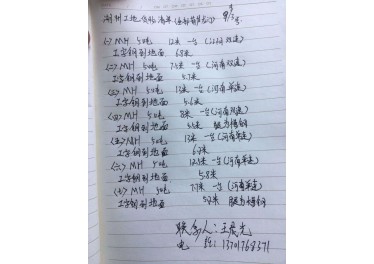 (一) MH 5吨 12米 一台(江西双速)
工字钢到地面 6.8米
(二) MH 5吨 7.5米 一台(河南双速)
工字钢到地面 5.7米
(三) MH 5吨 13米 一台(河南双速)
工字钢到地面 5.6米
(四) MH 5吨 8米 一台(河南双速)
工字钢到地面 5.5米
(五) MH 5吨 13米 一台(河南单速)
工字钢到地面 6.2米
(六) MH 5吨 12.5米 一台(河南单速)
工字钢到地面 5.8米
(七) MH 5吨 7.7米 一台(河南单速)
工字钢到地面 5.8米
联系人:王晨光
电 话:13701768571